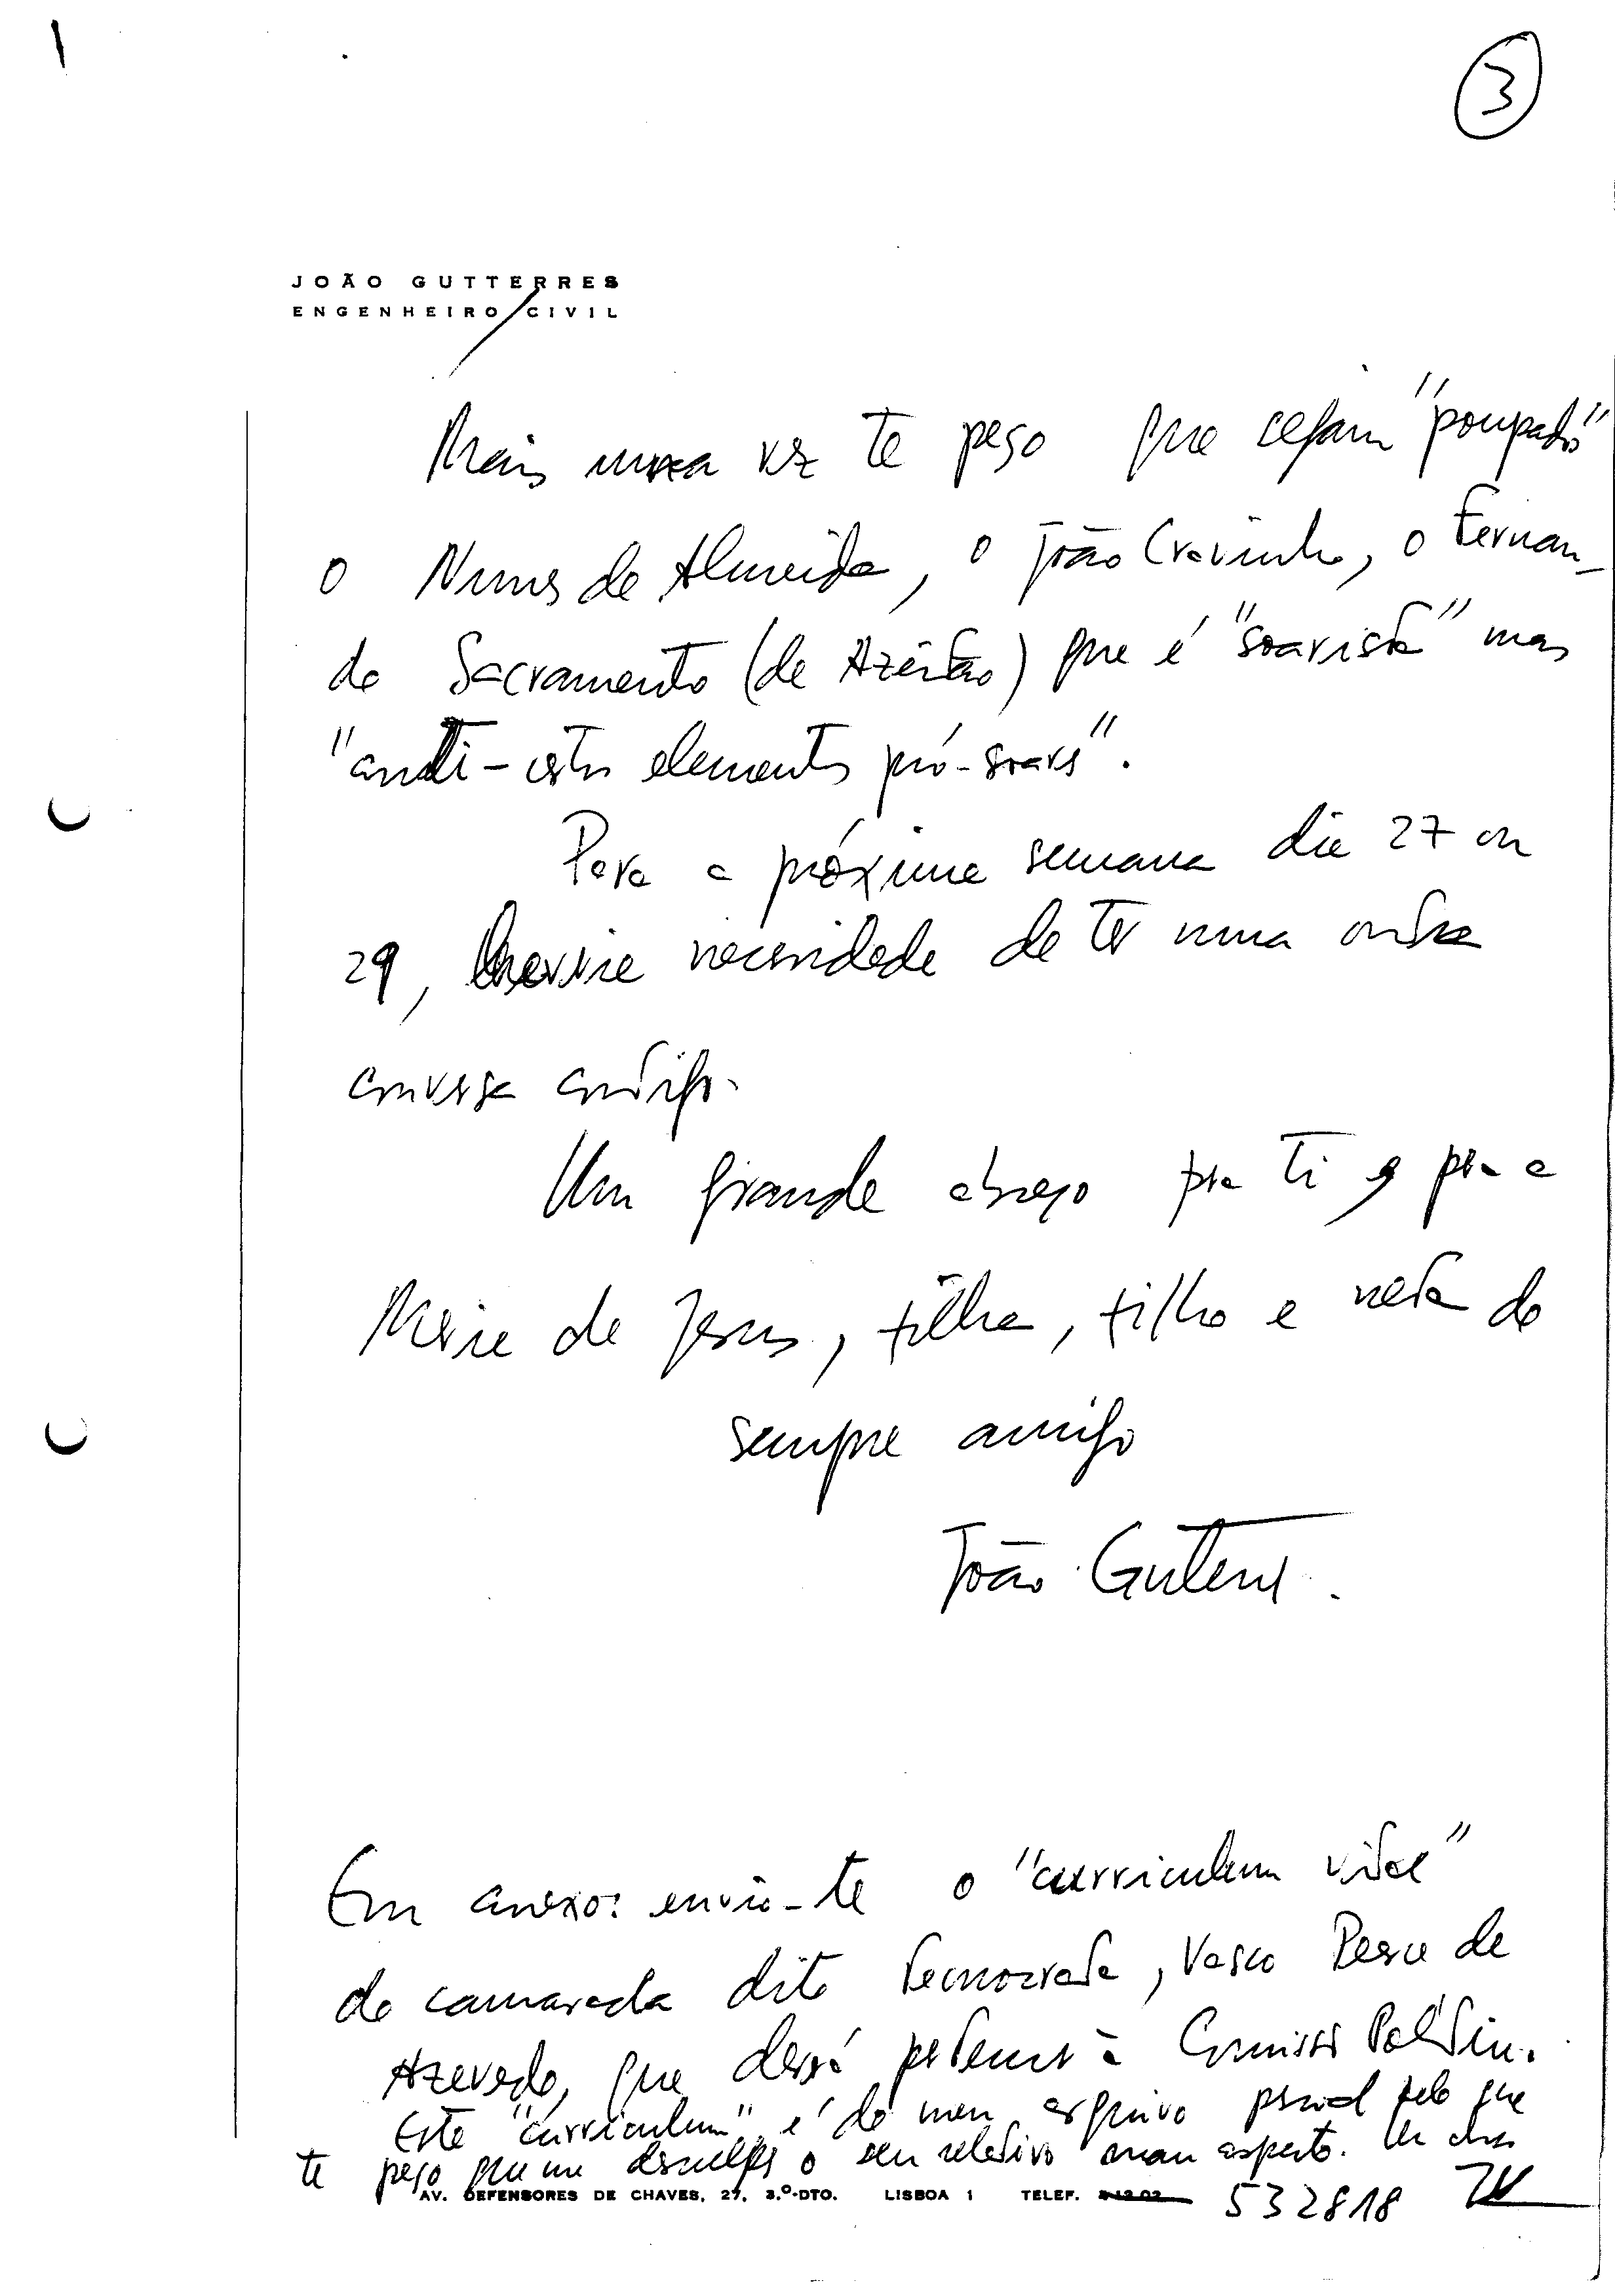 3
JOÃO GUTTERRES
ENGENHEIRO CIVIL
Mais uma vez te peço que sejam "poupados"
o Nunes de Almeida, o João Cravinho, o Fernan-
do Sacramento (de Azeitão) que é "soarista" mas
"anti-estes elementos pró-soares".
Para a próxima semana dia 27 ou
29, haveria necessidade de ter uma outra
conversa contigo.
Um grande abraço para ti e para a
Maria de Jesus, filha, filho e neta do
sempre amigo
João Guterres.
Em anexo: envio-te o "curriculum vitae"
do camarada dito tecnocrata, Vasco
Azevedo, que pertencer à Comissão
Este "curriculum" é do meu arquivo pessoal pelo que
te peço que me desculpes o seu relativo mau aspecto. Um abraço
AV. DEFENSORES DE CHAVES, 27, 3.º-DTO. LISBOA 1 TELEF. 532818